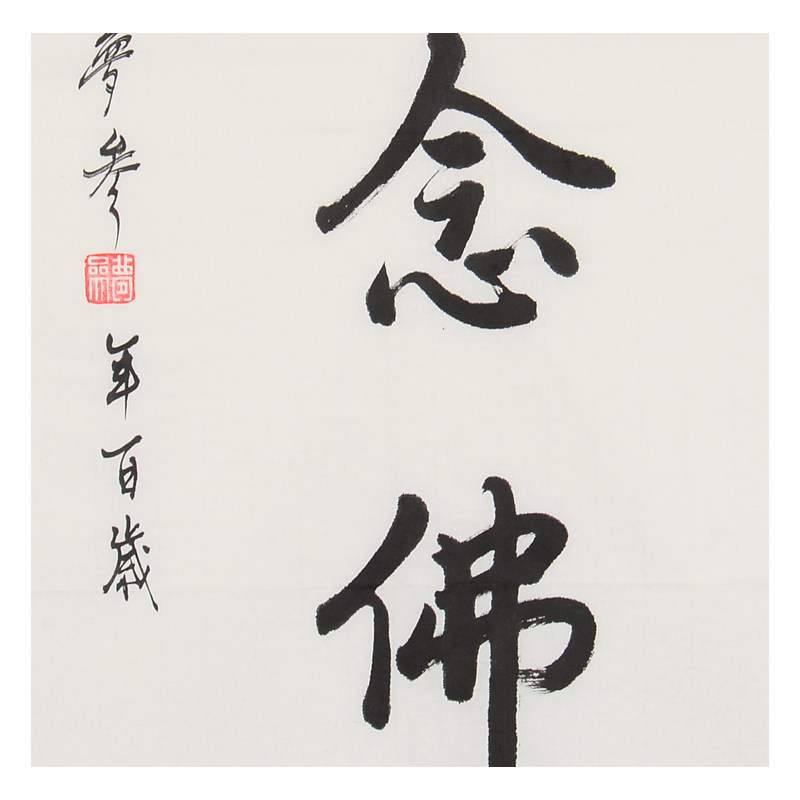 念佛
夢參
年百歲